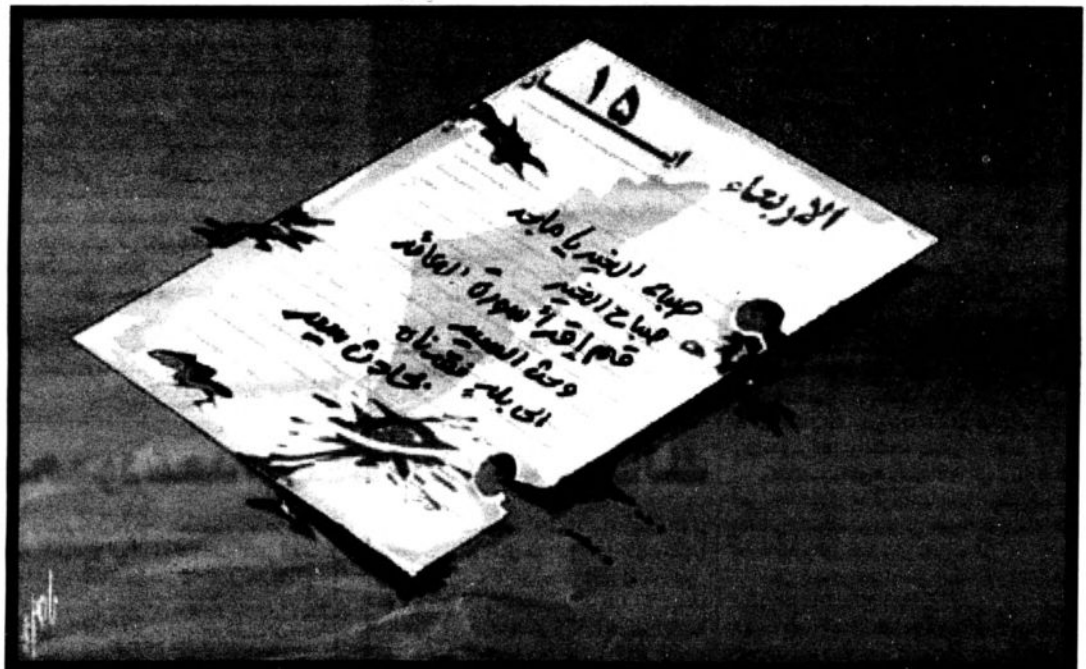 ١٥
ايـــار
الاربعاء
صباح الخير يا ماجد
صباح الخير
قم إقرأ سورة العائد
وحث السير
الى بلدٍ فقدناه
بحادث سير